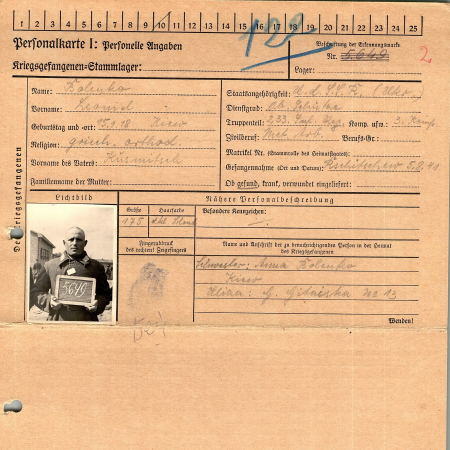 1 2 3 4 5 6 7 8 9 10 11 12 13 14 15 16 17 18 19 20 21 22 23 24 25
122
Personalkarte I: Personelle Angaben
Beschriftung der Erkennungsmarke
Nr. 5649
2.
Kriegsgefangenen-Stammlager:
Lager:
Des Kriegsgefangenen
Name: Bolenko
Vorname: Leonid
Geburtstag und -ort: 15.9.18 Kiew
Religion: griech. orthod
Vorname des Vaters: Kusmitsch
Familienname der Mutter:
Staatsangehörigkeit: U.d.S.S.R. (Ukr.)
Dienstgrad:
Truppenteil: 233. Inf. Reg. Komp. usw.: 3. Komp.
Zivilberuf: Berufs-Gr.:
Matrikel Nr. (Stammrolle des Heimatstaates):
Gefangennahme (Ort und Datum):
Ob gesund, krank, verwundet eingeliefert:
Lichtbild
5649
Nähere Personalbeschreibung
Größe Haarfarbe Besondere Kennzeichen:
175
Fingerabdruck
des rechten! Zeigefingers
Name und Anschrift der zu benachrichtigenden Person in der Heimat
des Kriegsgefangenen
Schwester: Anna Bolenko
Kiew
No 13
Wenden!